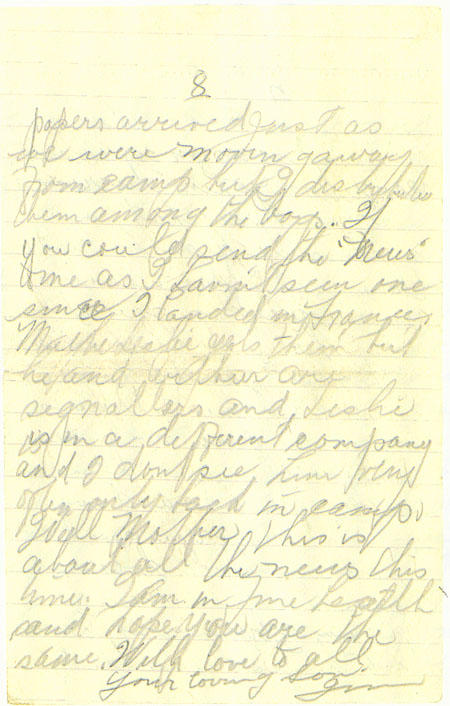 8
papers arrived just as
we were moving away
from camp but I distributed
them among the boys. If
you could send the "News"
to me as I havint seen one
since I landed in France.
Leslie gets them but
he and Wilbur are
signallers and Leslie
is in a different company
and I dont see him very
often only back in camp.
Well Mother this is
about all the news this
time. I am in fine health
and hope you are the
same. With love to all
Your loving Son
Jim